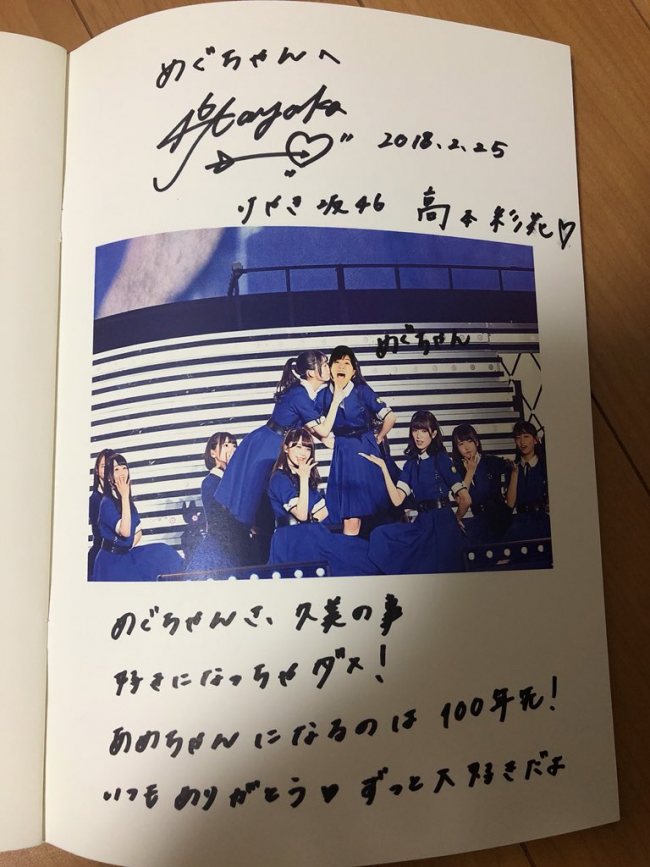 めぐちゃんへ
46 Ayaka
2018.2.25
けやき坂46 高本彩花♡
めぐちゃん
めぐちゃんさ、久美の事
好きになっちゃダメ!
あめちゃんになるのは 100年先!
いつもありがとう♥ ずっと大好きだよ